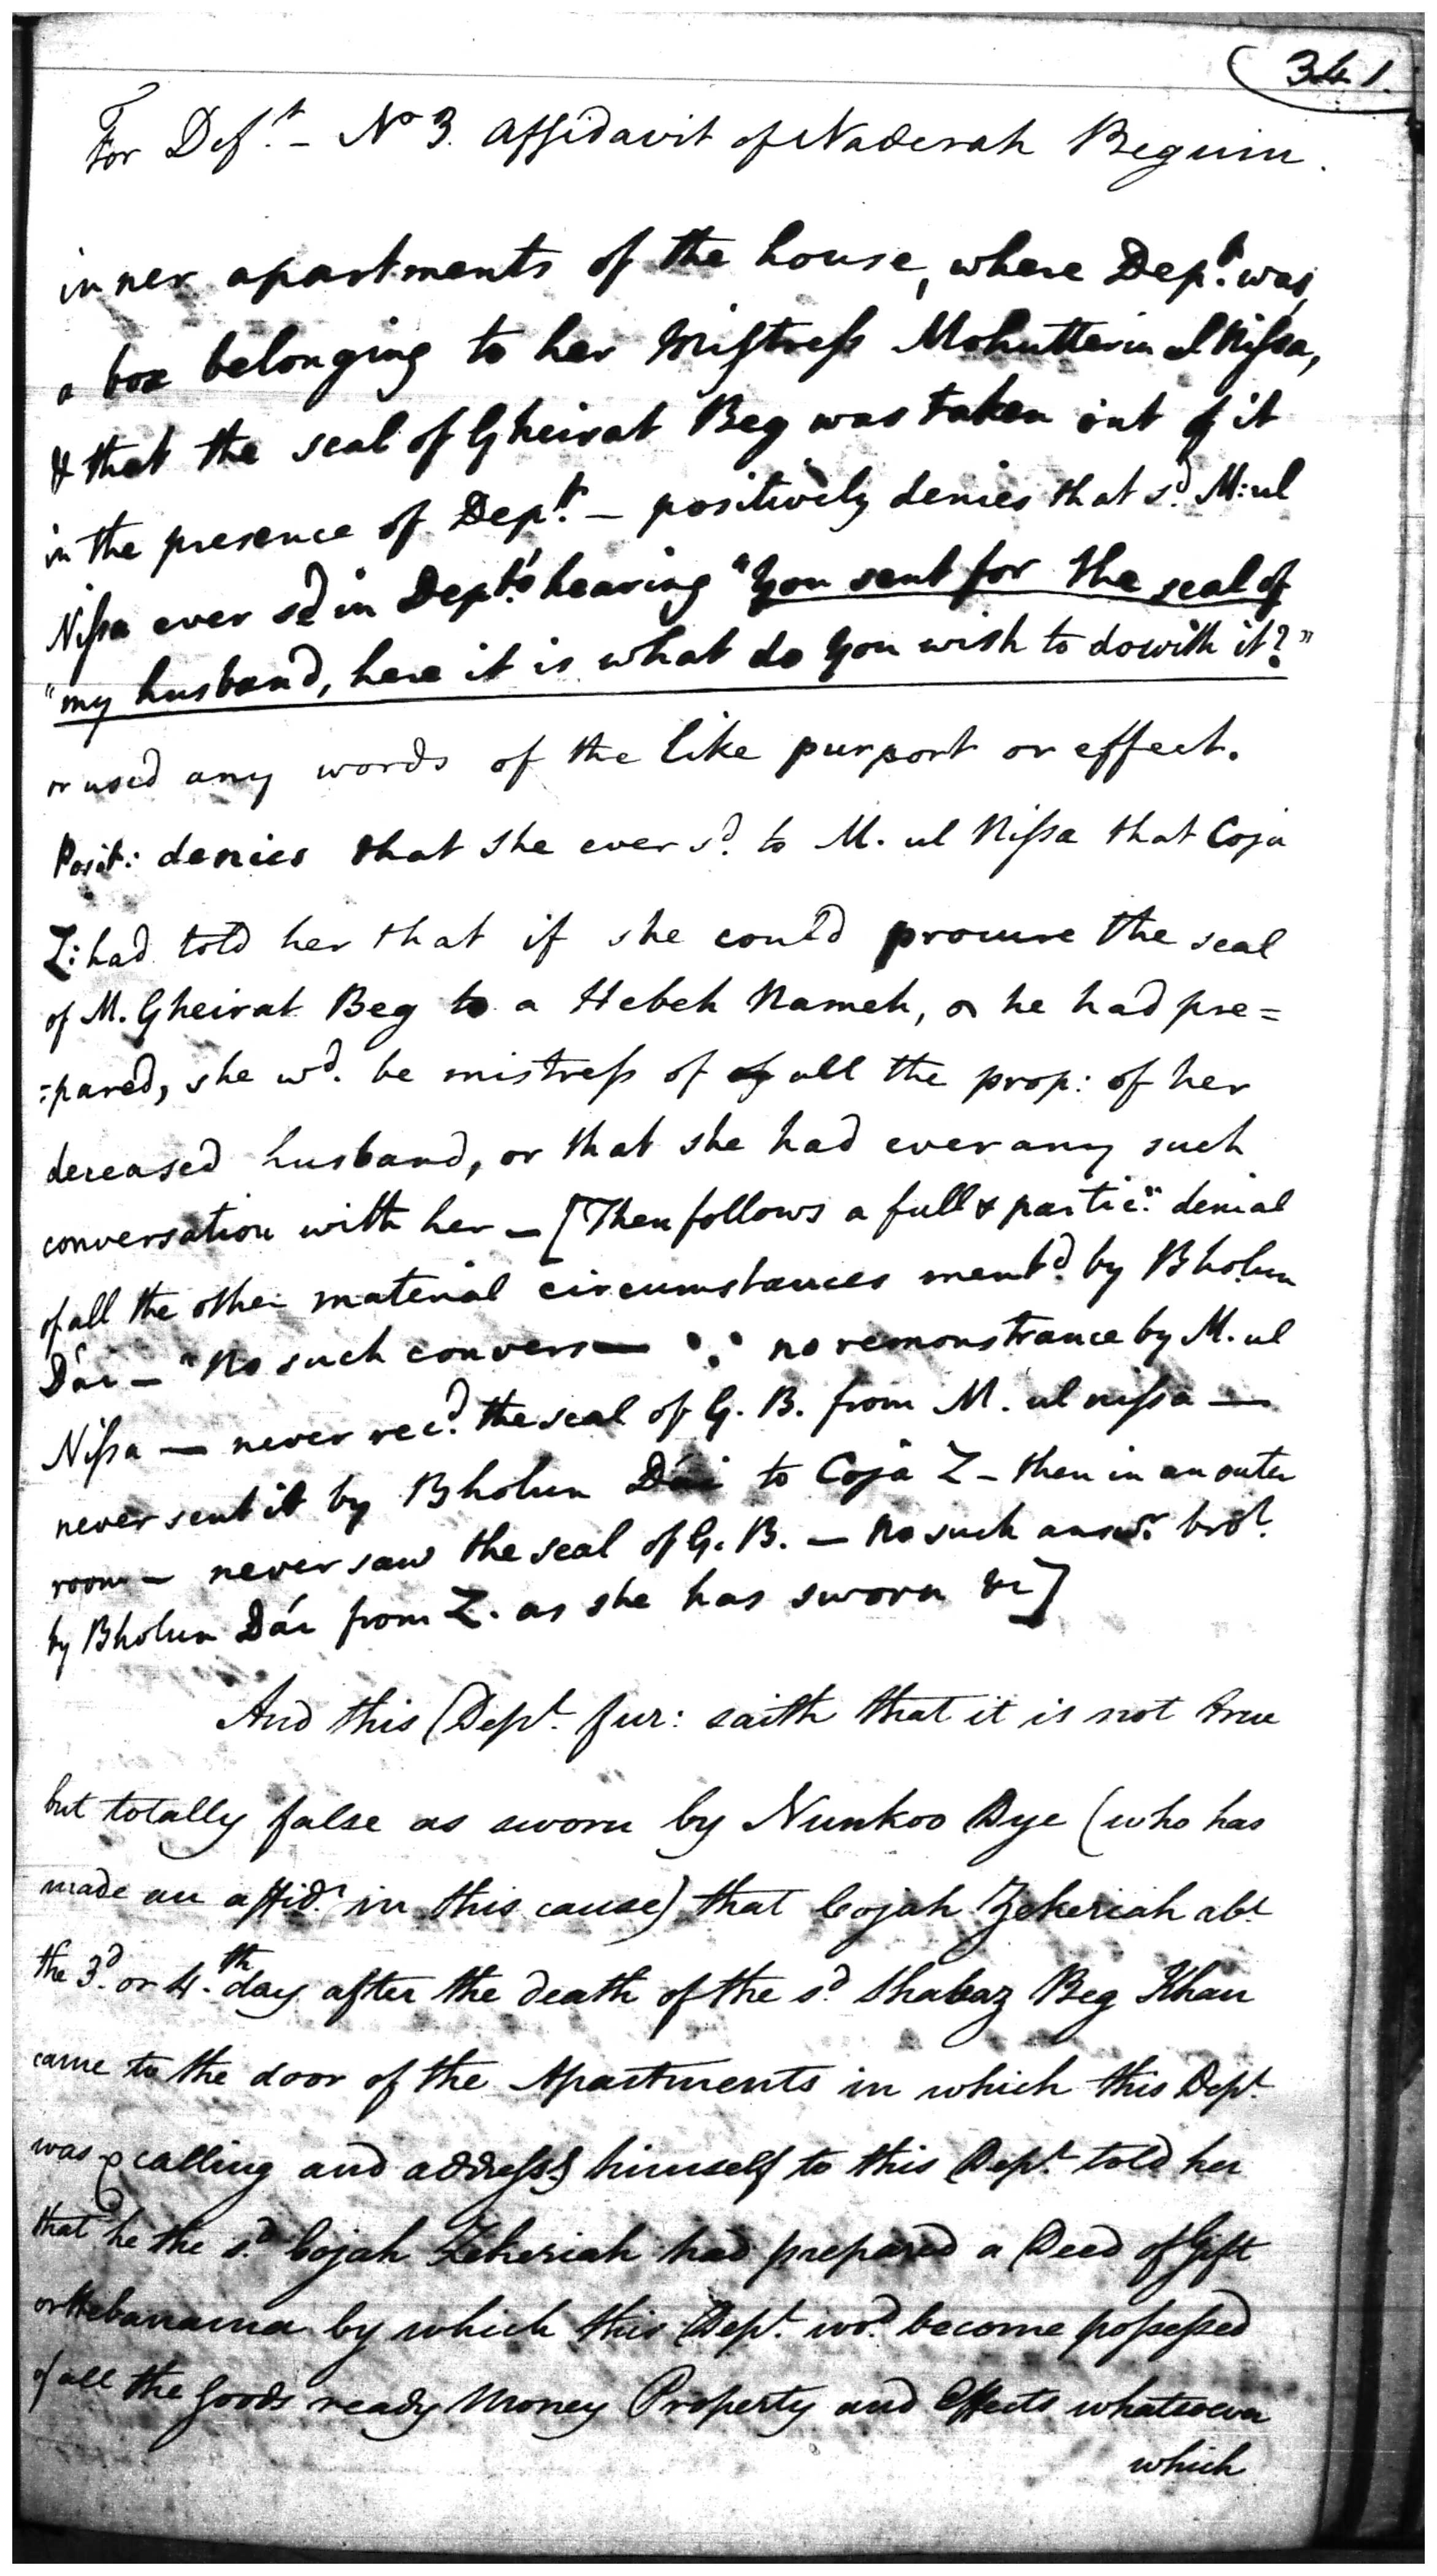 341.
For Def.t - No 3. Affidavit of Naderah Begum.
inner apartments of the house, where Dep.t was,
a box belonging to her Mistress Mohutterim ul Nissa,
& that the seal of Gheirat Beg was taken out of it
in the presence of Dep.t - positively denies that s.d M: ul
Nissa ever sd in Dept's hearing "You sent for the seal of
"my husband, here it is what do you wish to do with it?"
or used any words of the like purport or effect.
Posit: denies that she ever s.d to M. ul Nissa that Coja
Z: had told her that if she could procure the seal
of M. Gheirat Beg to a Hebeh Nameh, he had pre=
=pared, she wd. be mistress of all the prop: of her
deceased husband, or that she had ever any such
conversation with her - [Then follows a full & partic:r denial
of all the other material circumstances ment.d by Bholun
Dái - "No such convers— no remonstrance by M. ul
Nissa — never rec.d the seal of G. B. from M. ul nissa —
never sent it by Bholun Dái to Coja Z - then in an outer
room - never saw the seal of G. B. — No such answ.r bro.t
by Bholun Dái from Z. as she has sworn &c]
And this Dep.t fur: saith that it is not true
but totally false as sworn by Nunkoo Dye (who has
made an affid.t in this cause) that Cojah Zekeriah ab.t
the 3.d or 4.th day after the death of the s.d Shabaz Beg Khan
came to the door of the Apartments in which this Dep.t
was & calling and address.g himself to this Dep.t told her
that he the s.d Cojah Zekeriah had prepared a Deed of Gift
or Hebanama by which this Dep.t wo.d become possessed
of all the Goods ready Money Property and Effects whatsoever
which